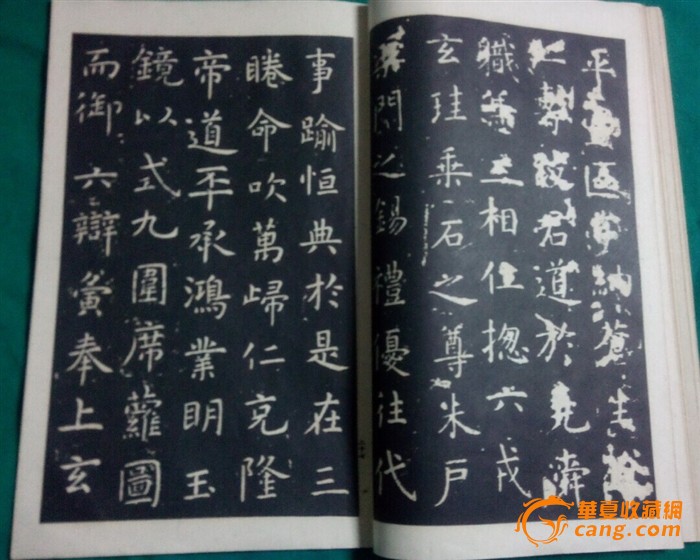 平壹區宇納蒼生於
仁壽致君道於堯舜
職兼三相位揔六戎
玄珪乘石之尊朱戶
渠門之錫禮優往代
事踰恒典於是在三
睠命吹萬歸仁克隆
帝道丕承鴻業明玉
鏡以式九圍席蘿圖
而御六辯寅奉上玄
華夏收藏網
cang.com